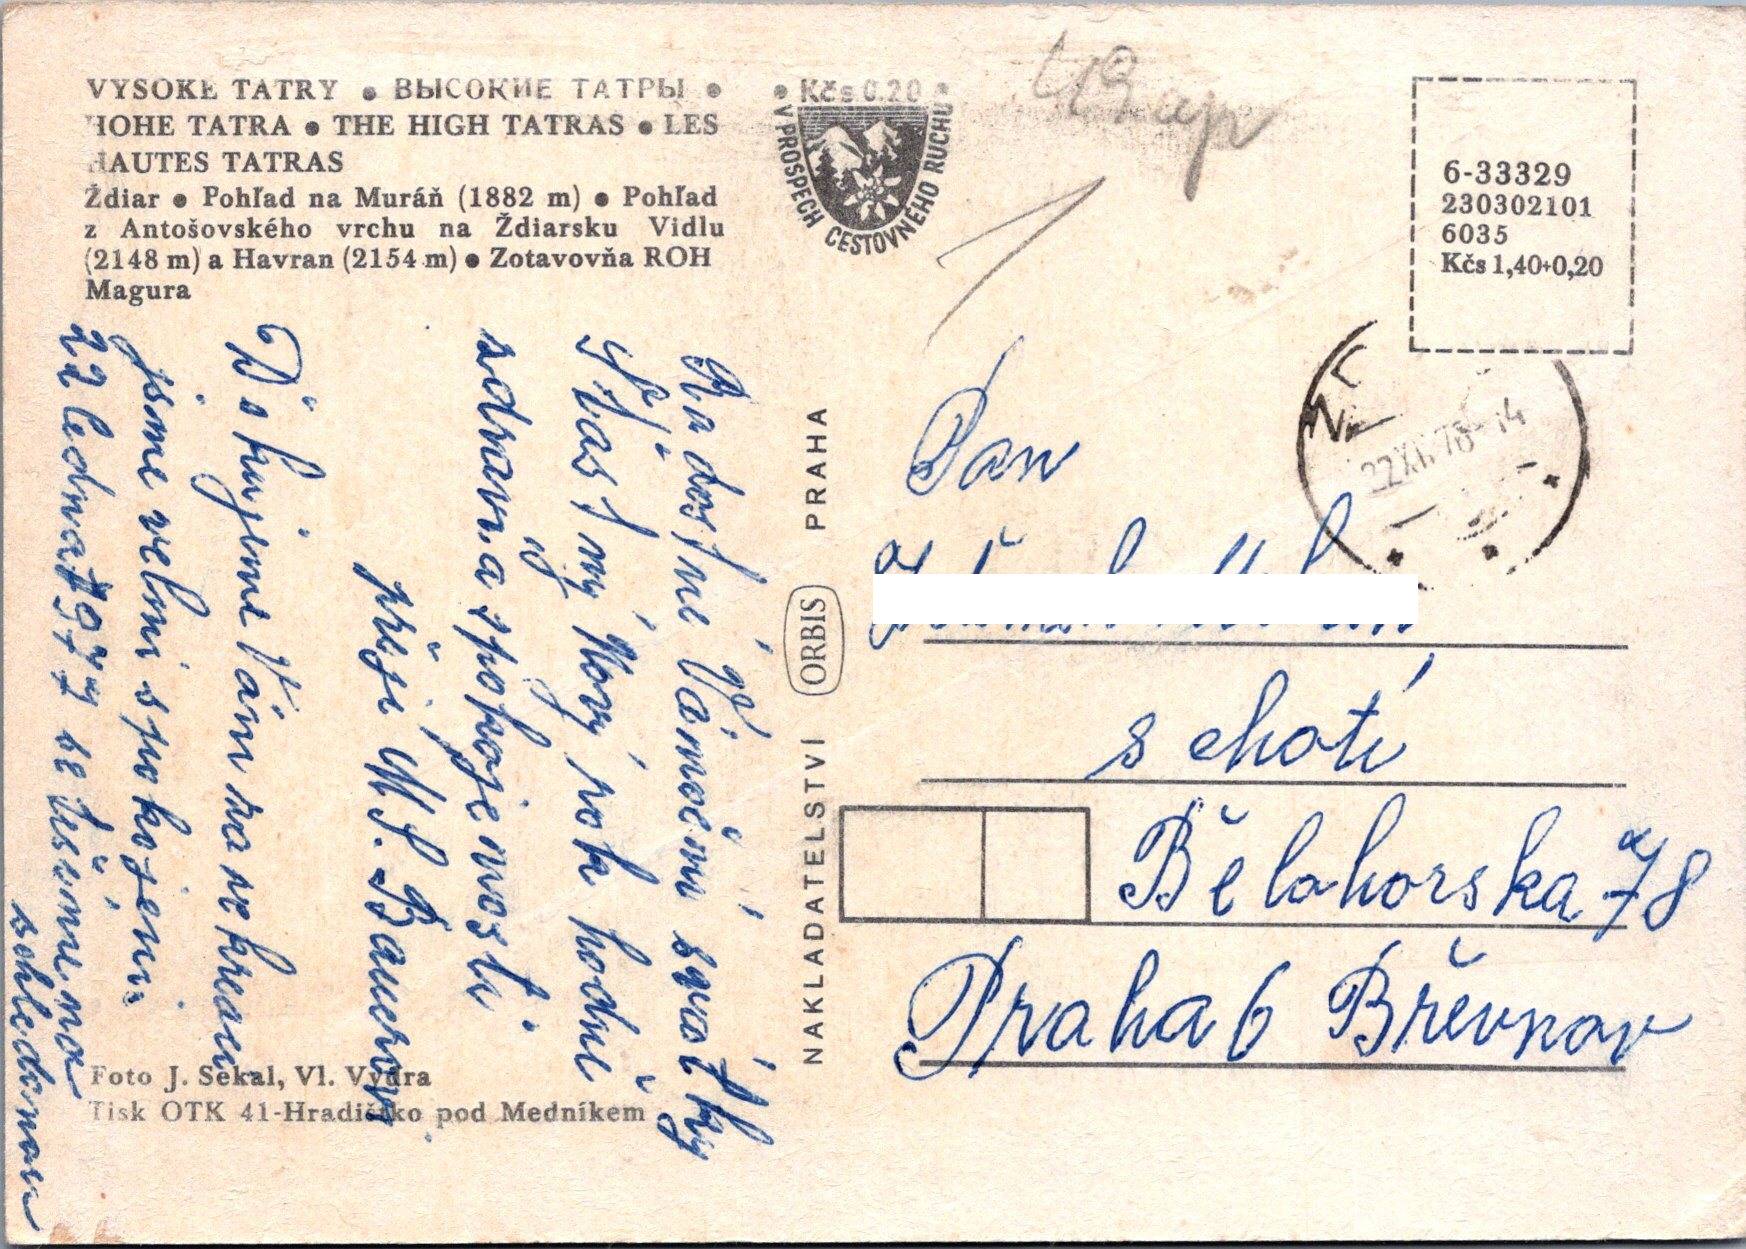 VYSOKÉ TATRY • ВЫСОКИЕ ТАТРЫ •
HOHE TATRA • THE HIGH TATRAS • LES
HAUTES TATRAS
Ždiar • Pohľad na Muráň (1882 m) • Pohľad
z Antošovského vrchu na Ždiarsku Vidlu
(2148 m) a Havran (2154 m) • Zotavovňa ROH
Magura
• Kčs 0.20 •
V PROSPECH CESTOVNÉHO RUCHU
6-33329
230302101
6035
Kčs 1,40+0,20
22.XII.78-14
Radostné Vánoční svátky
Šťastný Nový rok hodně
zdraví a spokojenosti
přeji M. S. Bauerovi
Děkujeme Vám za
jsme velmi spokojeni
22 ledna 1977 se těšíme na
schledanou
NAKLADATELSTVÍ ORBIS PRAHA
Pan
s chotí
Bělohorska 78
Praha 6 Břevnov
Foto J. Sekal, Vl. Vydra
Tisk OTK 41-Hradištko pod Medníkem